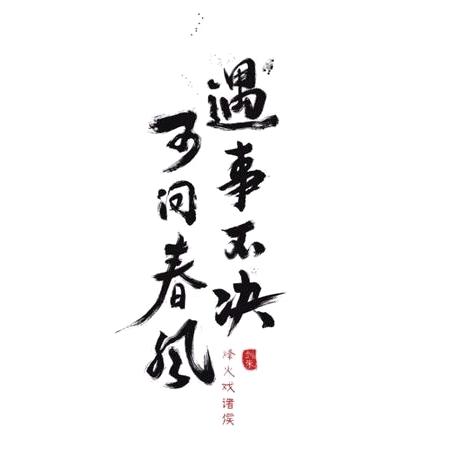 遇事不决
可问春风
烽火戏诸侯
剑来